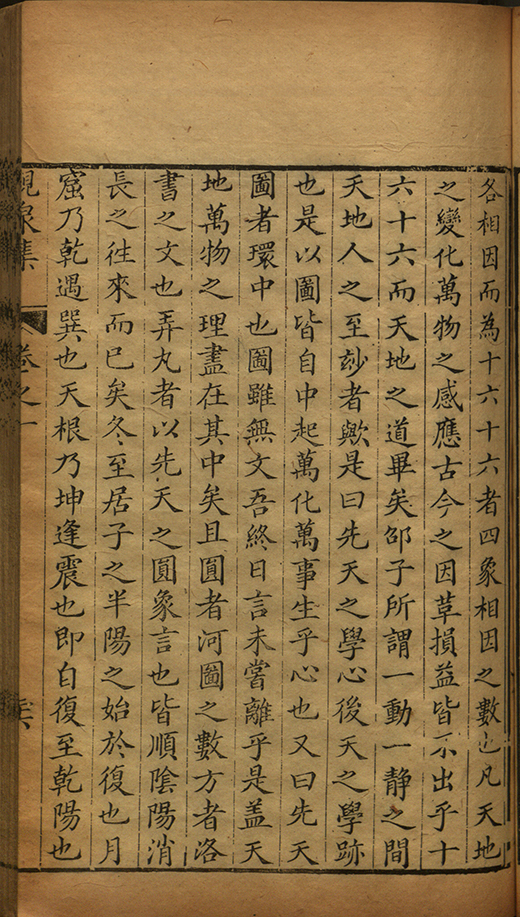 各相因而為十六十六者四象相因之數也凡天地
之變化萬物之感應古今之因草損益皆不出乎十
六十六而天地之道畢矣邵子所謂一動一静之間
天地人之至玅者歟是曰先天之學心後天之學跡
也是以圖皆自中起萬化萬事生乎心也又曰先天
圖者環中也圖雖無文吾終日言未嘗離乎是盖天
地萬物之理盡在其中矣且圓者河圖之數方者洛
書之文也弄丸者以先天之圓象言也皆順陰陽消
長之往來而已矣冬至居子之半陽之始於復也月
窟乃乾遇巽也天根乃坤逢震也即自復至乾陽也
觀象集 卷之一